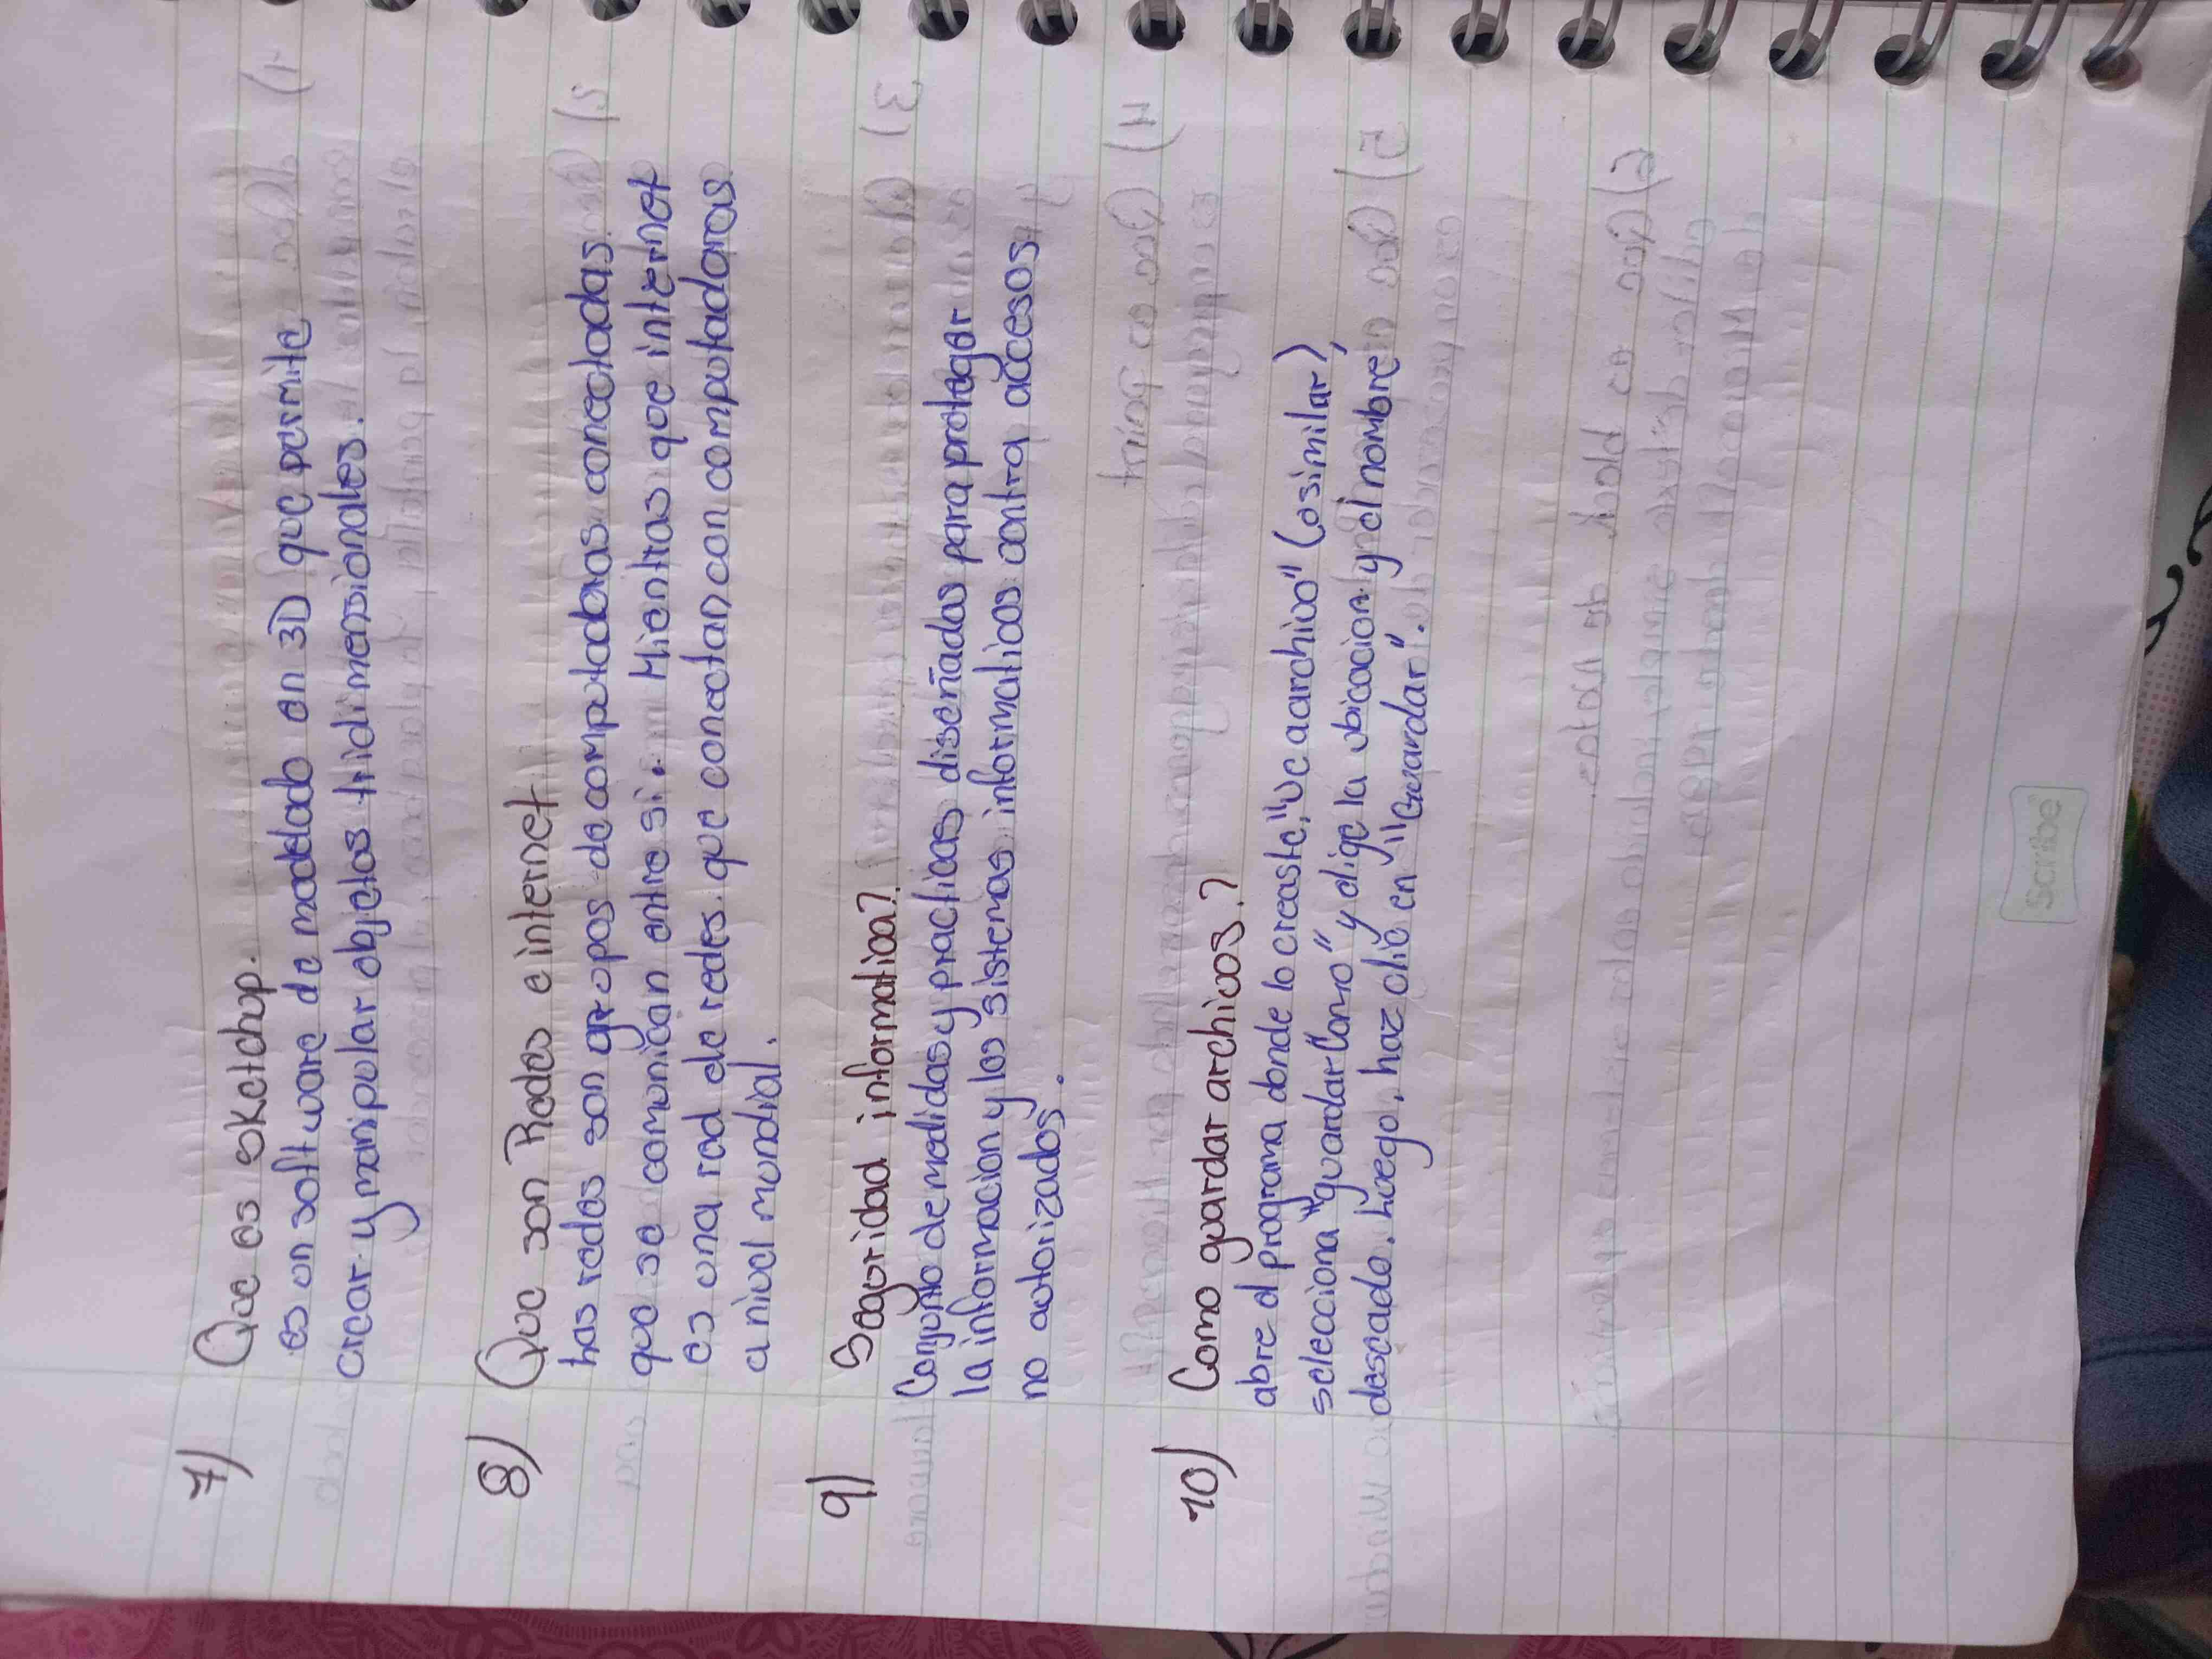 7) Que es sketchup.
es un software de modelado en 3D que permite
crear y manipular objetos tridimensionales.
8) Que son Redes e internet
has redes son grupos de computadoras conectadas
que se comunican entre si. Mientras que internet
es una red de redes que conectan con computadoras
a nivel mundial.
9) Seguridad informatica?
Conjunto de medidas y practicas diseñadas para proteger
la informacion y los sistemas informaticos contra accesos
no autorizados.
10) Como guardar archivos?
abre el programa donde lo creaste, "ve a archivo" (o similar),
selecciona "guardar Como" y elige la ubicacion y el nombre
deseado. Luego, haz clic en "Guardar".
Scribe